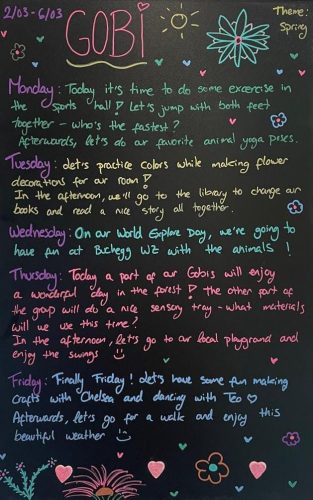 2/03 - 6/03
GOBI
Theme:
Spring
Monday: Today it's time to do some excercise in
the sports hall! Let's jump with both feet
together - who's the fastest?
Afterwards, let's do our favorite animal yoga poses.
Tuesday: Let's practice colors while making flower
decorations for our room!
In the afternoon, we'll go to the library to change our
books and read a nice story all together.
Wednesday: On our World Explore Day, we're going to
have fun at Buchegg WZ with the animals!
Thursday: Today a part of our Gobis will enjoy
a wonderful day in the forest! The other part of
the group will do a nice sensory tray - what materials
will we use this time?
In the afternoon, let's go to our local playground and
enjoy the swings
Friday: Finally Friday! Let's have some fun making
crafts with Chelsea and dancing with Teo
Afterwards, let's go for a walk and enjoy this
beautiful weather